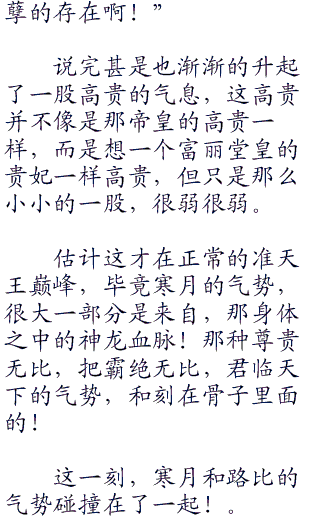 孽的存在啊！”
说完甚是也渐渐的升起
了一股高贵的气息，这高贵
并不像是那帝皇的高贵一
样，而是想一个富丽堂皇的
贵妃一样高贵，但只是那么
小小的一股，很弱很弱。
估计这才在正常的准天
王巅峰，毕竟寒月的气势，
很大一部分是来自，那身体
之中的神龙血脉！那种尊贵
无比，把霸绝无比，君临天
下的气势，和刻在骨子里面
的！
这一刻，寒月和路比的
气势碰撞在了一起！。